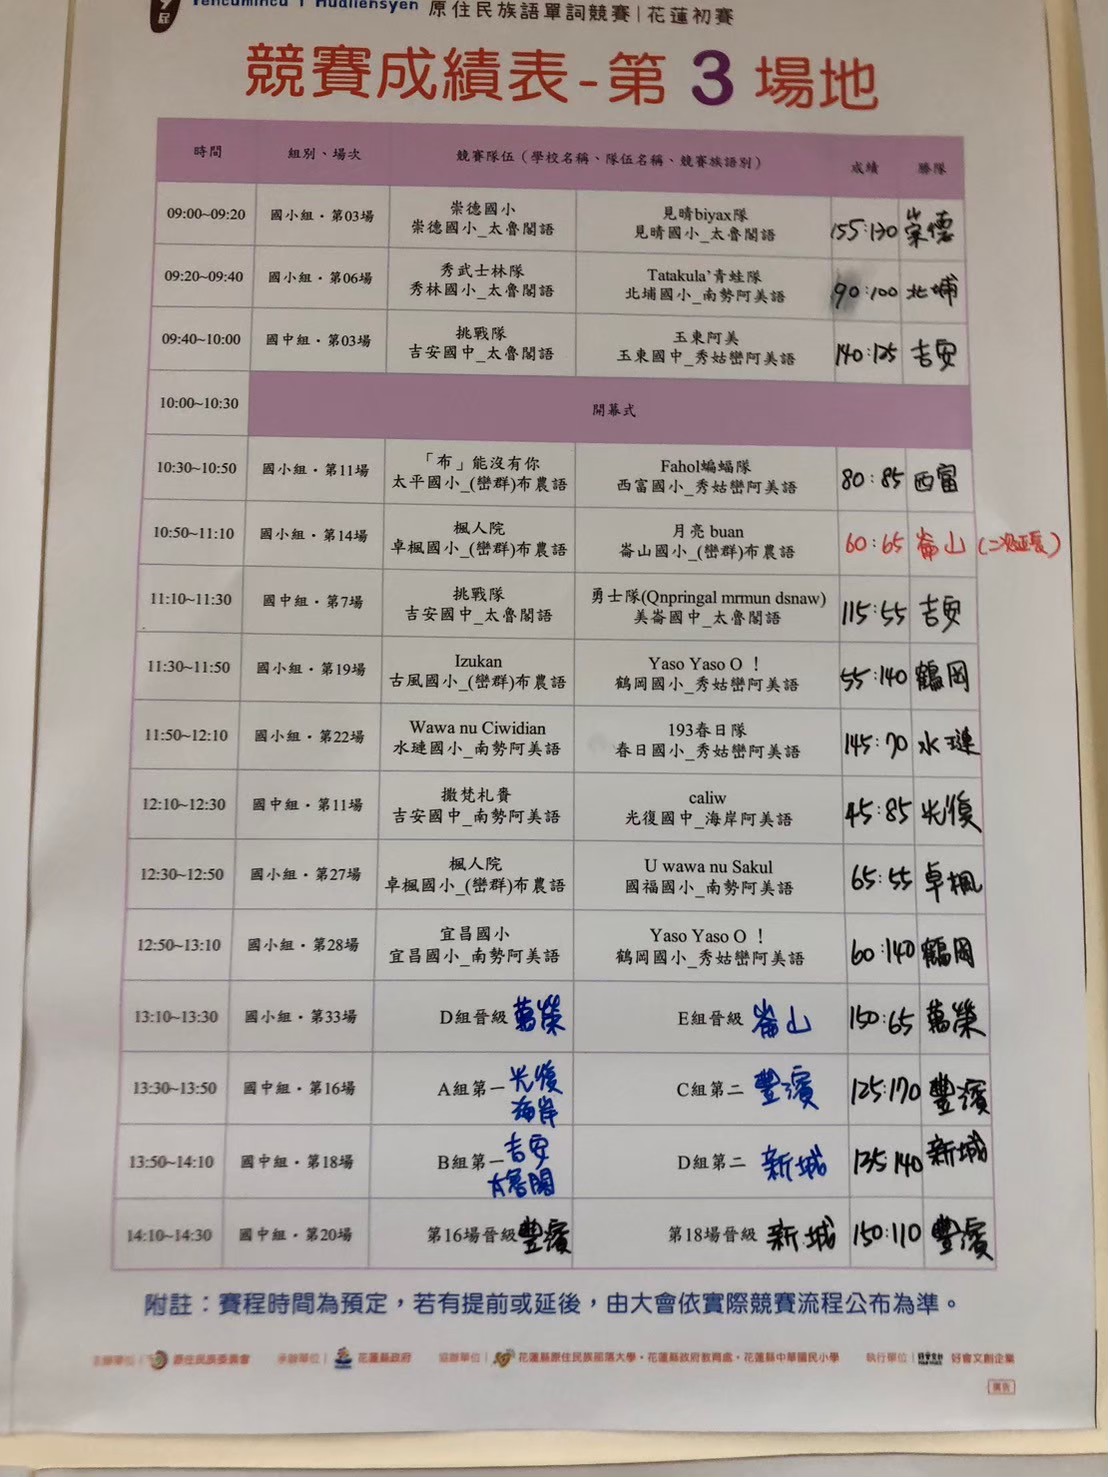 Hualiensyen 原住民族語單詞競賽|花蓮初賽
競賽成績表-第 3 場地
時間 組別、場次 競賽隊伍(學校名稱、隊伍名稱、競賽族語別) 成績 勝隊
09:00~09:20 國小組・第03場 崇德國小 見晴biyax隊 155:130 崇德
崇德國小_太魯閣語 見晴國小_太魯閣語
09:20~09:40 國小組・第06場 秀武士林隊 Tatakula’青蛙隊 90:100 北埔
秀林國小_太魯閣語 北埔國小_南勢阿美語
09:40~10:00 國中組・第03場 挑戰隊 玉東阿美 140:125 吉安
吉安國中_太魯閣語 玉東國中_秀姑巒阿美語
10:00~10:30 開幕式
10:30~10:50 國小組・第11場 「布」能沒有你 Fahol蝙蝠隊 80:85 西富
太平國小_(巒群)布農語 西富國小_秀姑巒阿美語
10:50~11:10 國小組・第14場 楓人院 月亮 buan 60:65 崙山(二次延長)
卓楓國小_(巒群)布農語 崙山國小_(巒群)布農語
11:10~11:30 國中組・第7場 挑戰隊 勇士隊(Qnpringal mrmun dsnaw) 115:55 吉安
吉安國中_太魯閣語 美崙國中_太魯閣語
11:30~11:50 國小組・第19場 Izukan Yaso Yaso O ! 55:140 鶴岡
古風國小_(巒群)布農語 鶴岡國小_秀姑巒阿美語
11:50~12:10 國小組・第22場 Wawa nu Ciwidian 193春日隊 145:70 水璉
水璉國小_南勢阿美語 春日國小_秀姑巒阿美語
12:10~12:30 國中組・第11場 撒梵札賚 caliw 45:85 光復
吉安國中_南勢阿美語 光復國中_海岸阿美語
12:30~12:50 國小組・第27場 楓人院 U wawa nu Sakul 65:55 卓楓
卓楓國小_(巒群)布農語 國福國小_南勢阿美語
12:50~13:10 國小組・第28場 宜昌國小 Yaso Yaso O ! 60:140 鶴岡
宜昌國小_南勢阿美語 鶴岡國小_秀姑巒阿美語
13:10~13:30 國小組・第33場 D組晉級 萬榮 E組晉級 崙山 150:65 萬榮
13:30~13:50 國中組・第16場 A組第一 光復 C組第二 豐濱 125:170 豐濱
海岸
13:50~14:10 國中組・第18場 B組第一 吉安 D組第二 新城 135:140 新城
太魯閣
14:10~14:30 國中組・第20場 第16場晉級 豐濱 第18場晉級 新城 150:110 豐濱
附註:賽程時間為預定,若有提前或延後,由大會依實際競賽流程公布為準。
主辦單位| 原住民族委員會 承辦單位| 花蓮縣政府 協辦單位| 花蓮縣原住民族部落大學・花蓮縣政府教育處・花蓮縣中華國民小學 執行單位| 好會文創企業
廣告